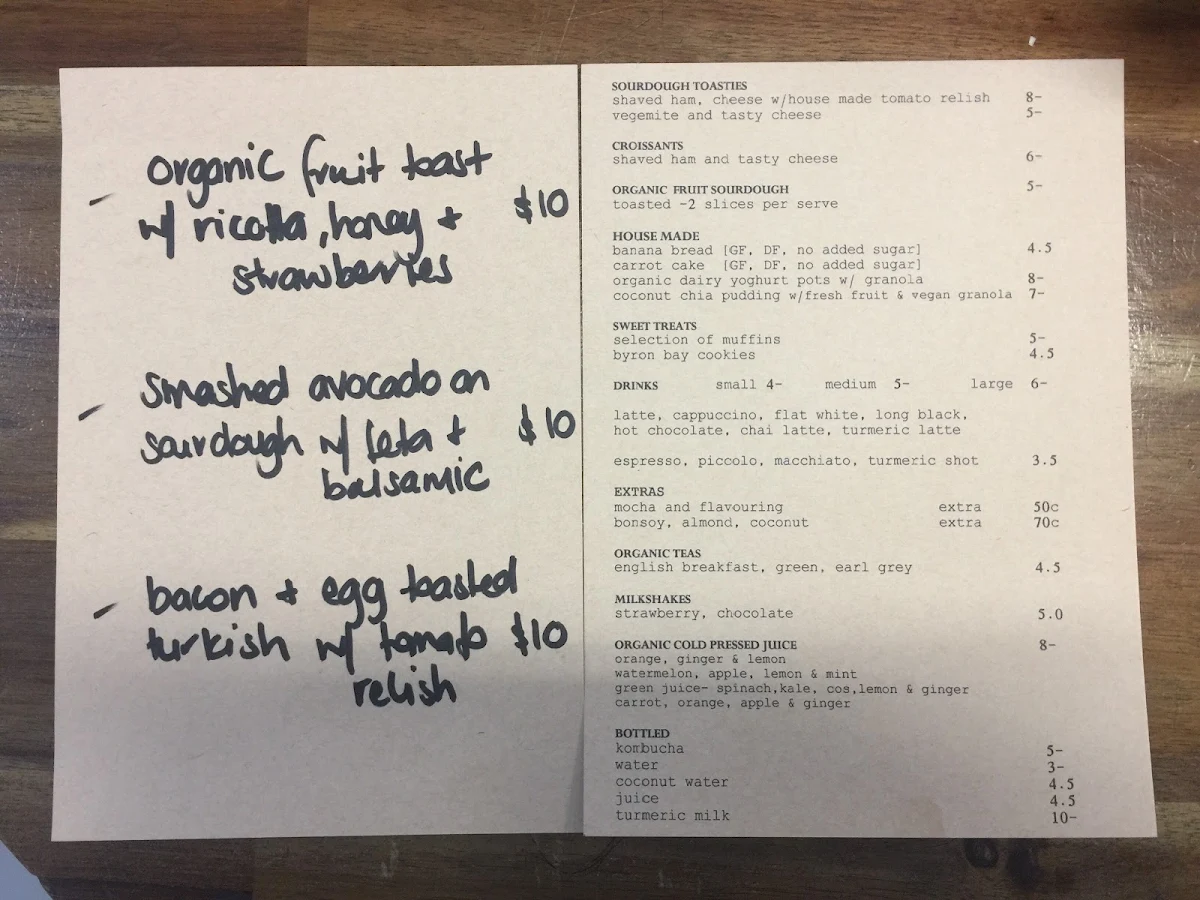 organic fruit toast
w/ ricotta, honey + $10
strawberries
smashed avocado on
sourdough w/ feta + $10
balsamic
bacon + egg toasted
turkish w/ tomato $10
relish
SOURDOUGH TOASTIES
shaved ham, cheese w/house made tomato relish 8-
vegemite and tasty cheese 5-
CROISSANTS
shaved ham and tasty cheese 6-
ORGANIC FRUIT SOURDOUGH 5-
toasted -2 slices per serve
HOUSE MADE
banana bread [GF, DF, no added sugar] 4.5
carrot cake [GF, DF, no added sugar]
organic dairy yoghurt pots w/ granola 8-
coconut chia pudding w/fresh fruit & vegan granola 7-
SWEET TREATS
selection of muffins 5-
byron bay cookies 4.5
DRINKS small 4- medium 5- large 6-
latte, cappuccino, flat white, long black,
hot chocolate, chai latte, turmeric latte
espresso, piccolo, macchiato, turmeric shot 3.5
EXTRAS
mocha and flavouring extra 50c
bonsoy, almond, coconut extra 70c
ORGANIC TEAS
english breakfast, green, earl grey 4.5
MILKSHAKES
strawberry, chocolate 5.0
ORGANIC COLD PRESSED JUICE 8-
orange, ginger & lemon
watermelon, apple, lemon & mint
green juice- spinach,kale, cos,lemon & ginger
carrot, orange, apple & ginger
BOTTLED
kombucha 5-
water 3-
coconut water 4.5
juice 4.5
turmeric milk 10-